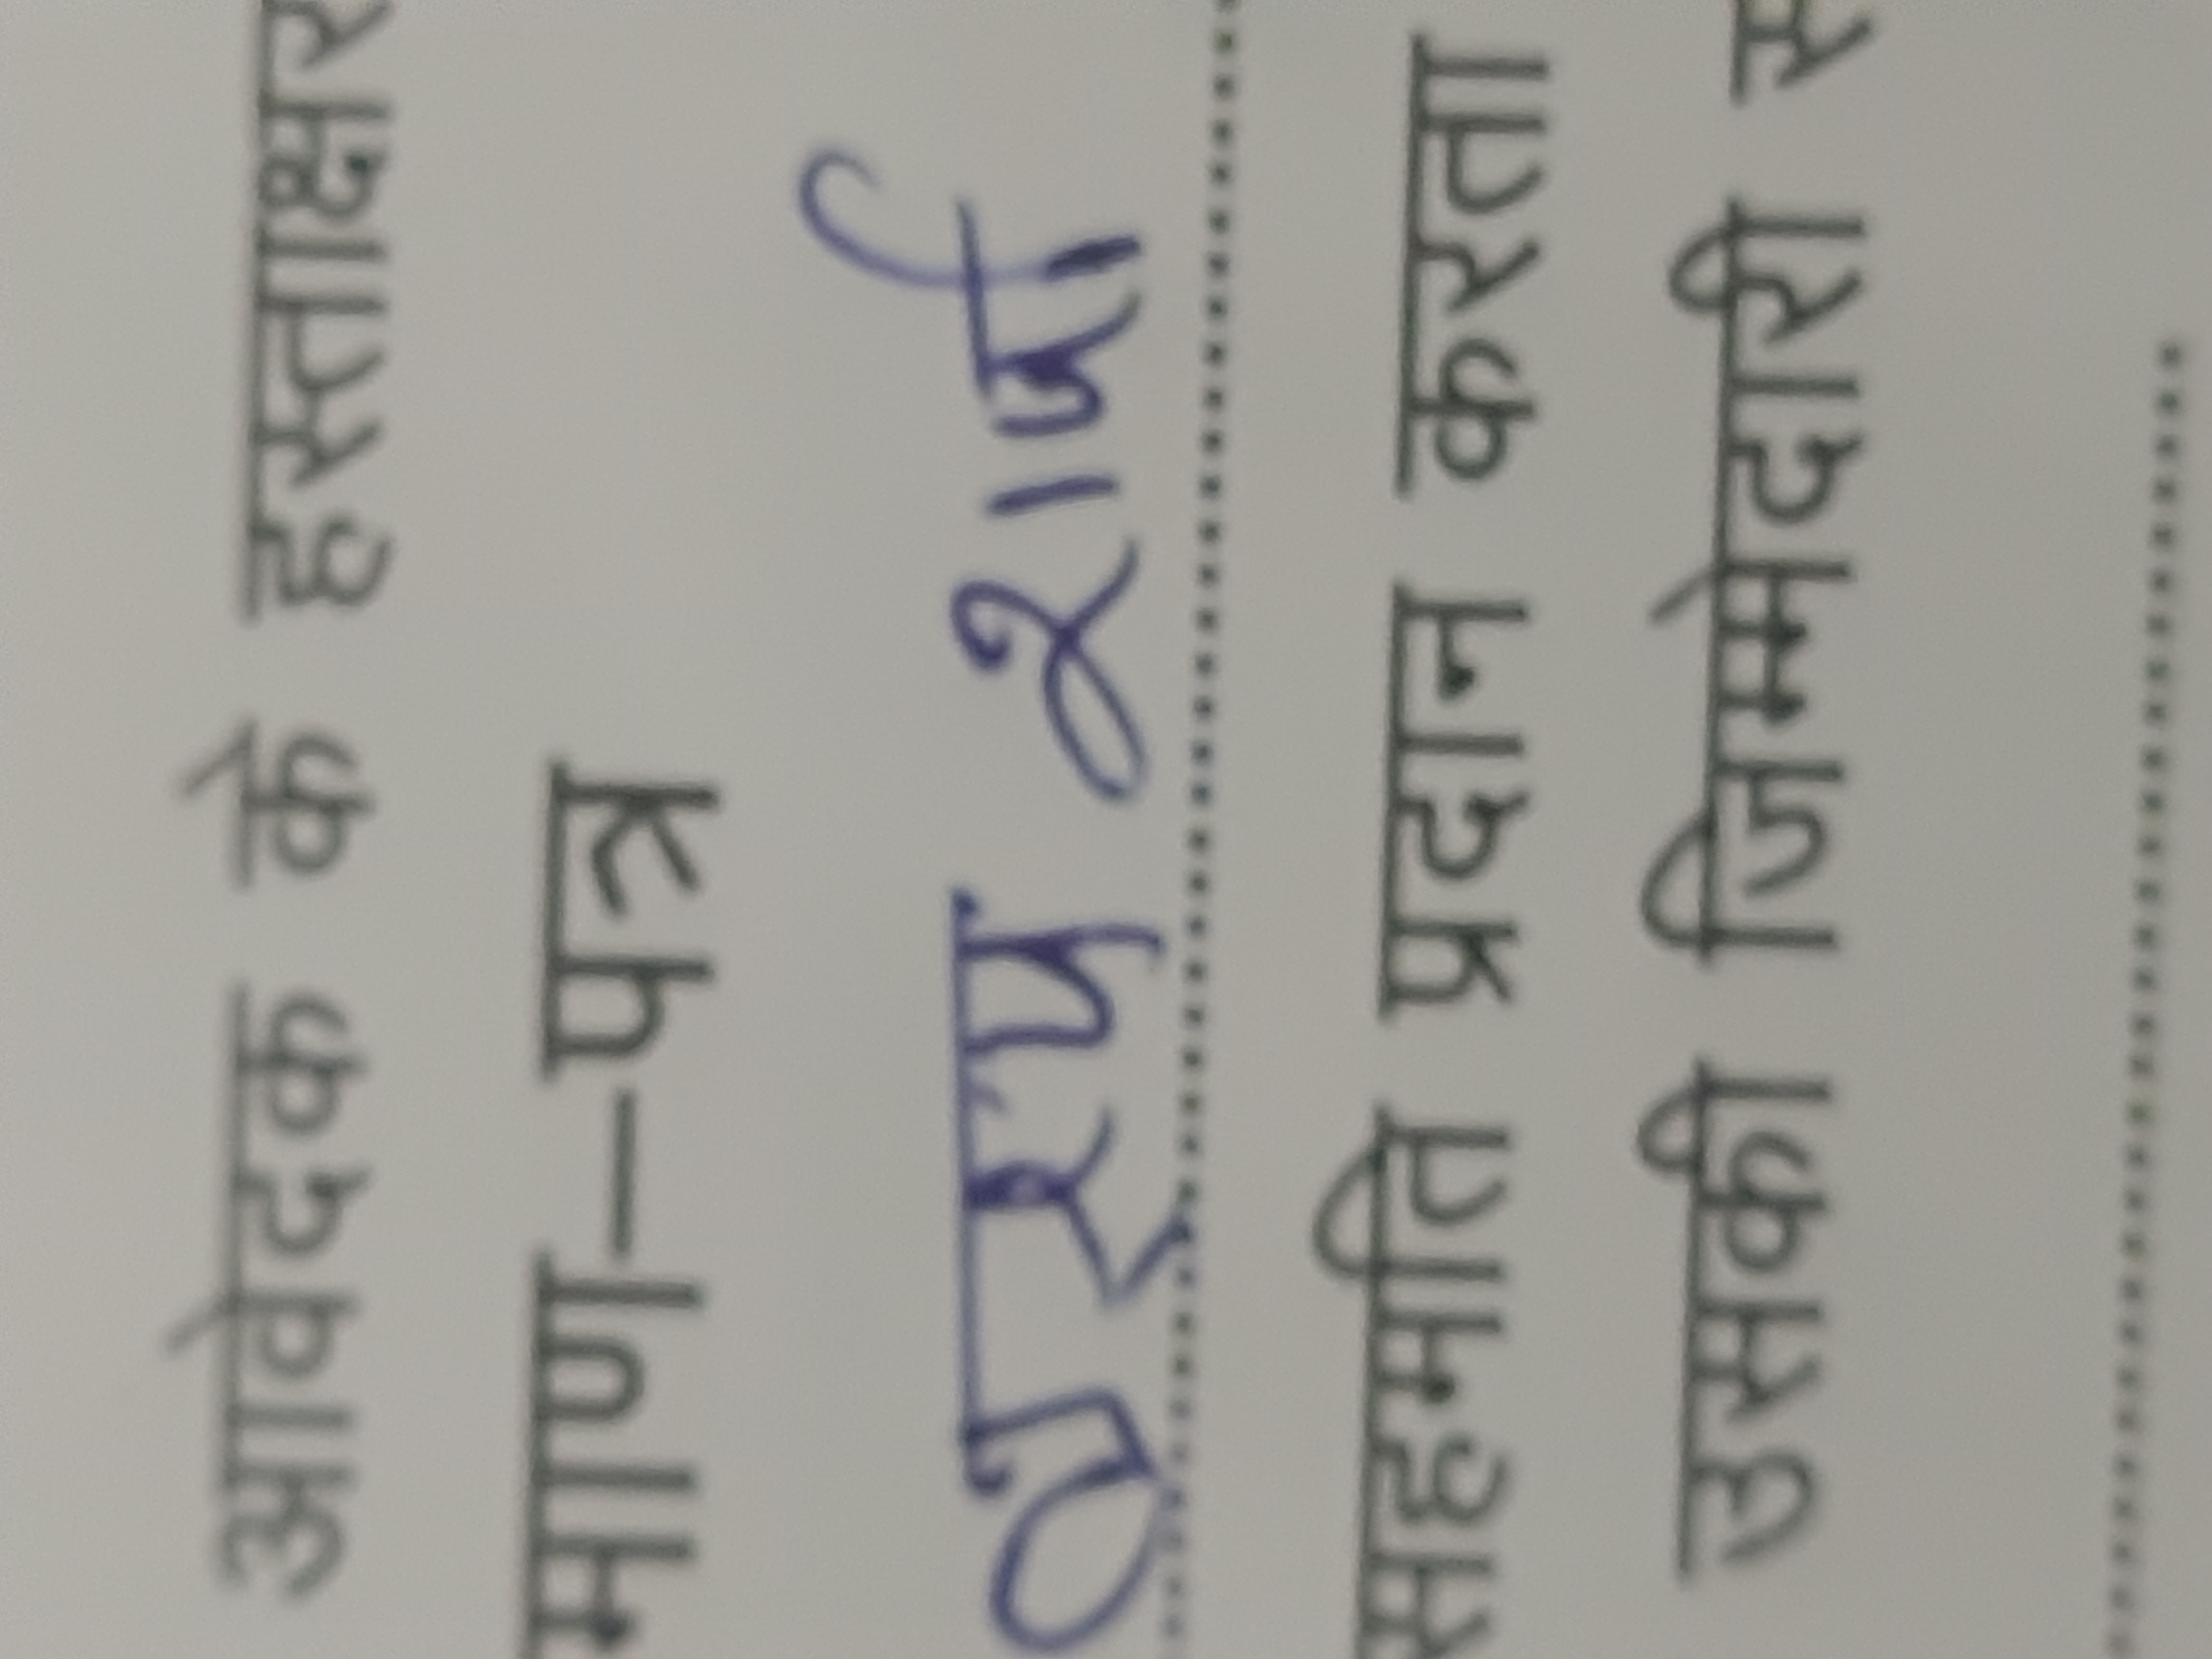 आवेदक के हस्ताक्षर
माण–पत्र
शर्मा
सहमति प्रदान करता
उसकी जिम्मेदारी